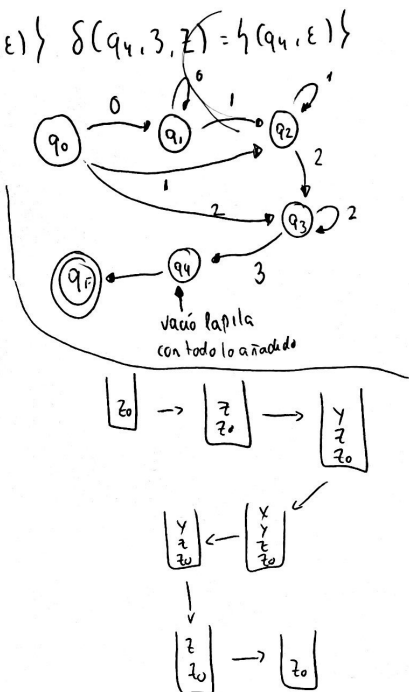 ε)} δ(q4, 3, Z) = {(q4, ε)}
0
0
1
1
q0
q1
q2
1
2
2
q3
2
qF
q4
3
vació la pila
con todo lo añadido
Z0
Z
Z0
Y
Z
Z0
Y
Z
Z0
X
Y
Z
Z0
Z
Z0
Z0